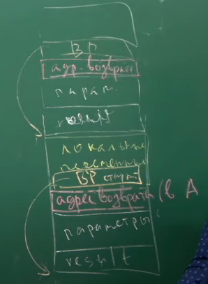 BP
адр. возврата
парам.
result
локальные
переменные
BP старый
адрес возврата (в A
параметры
result